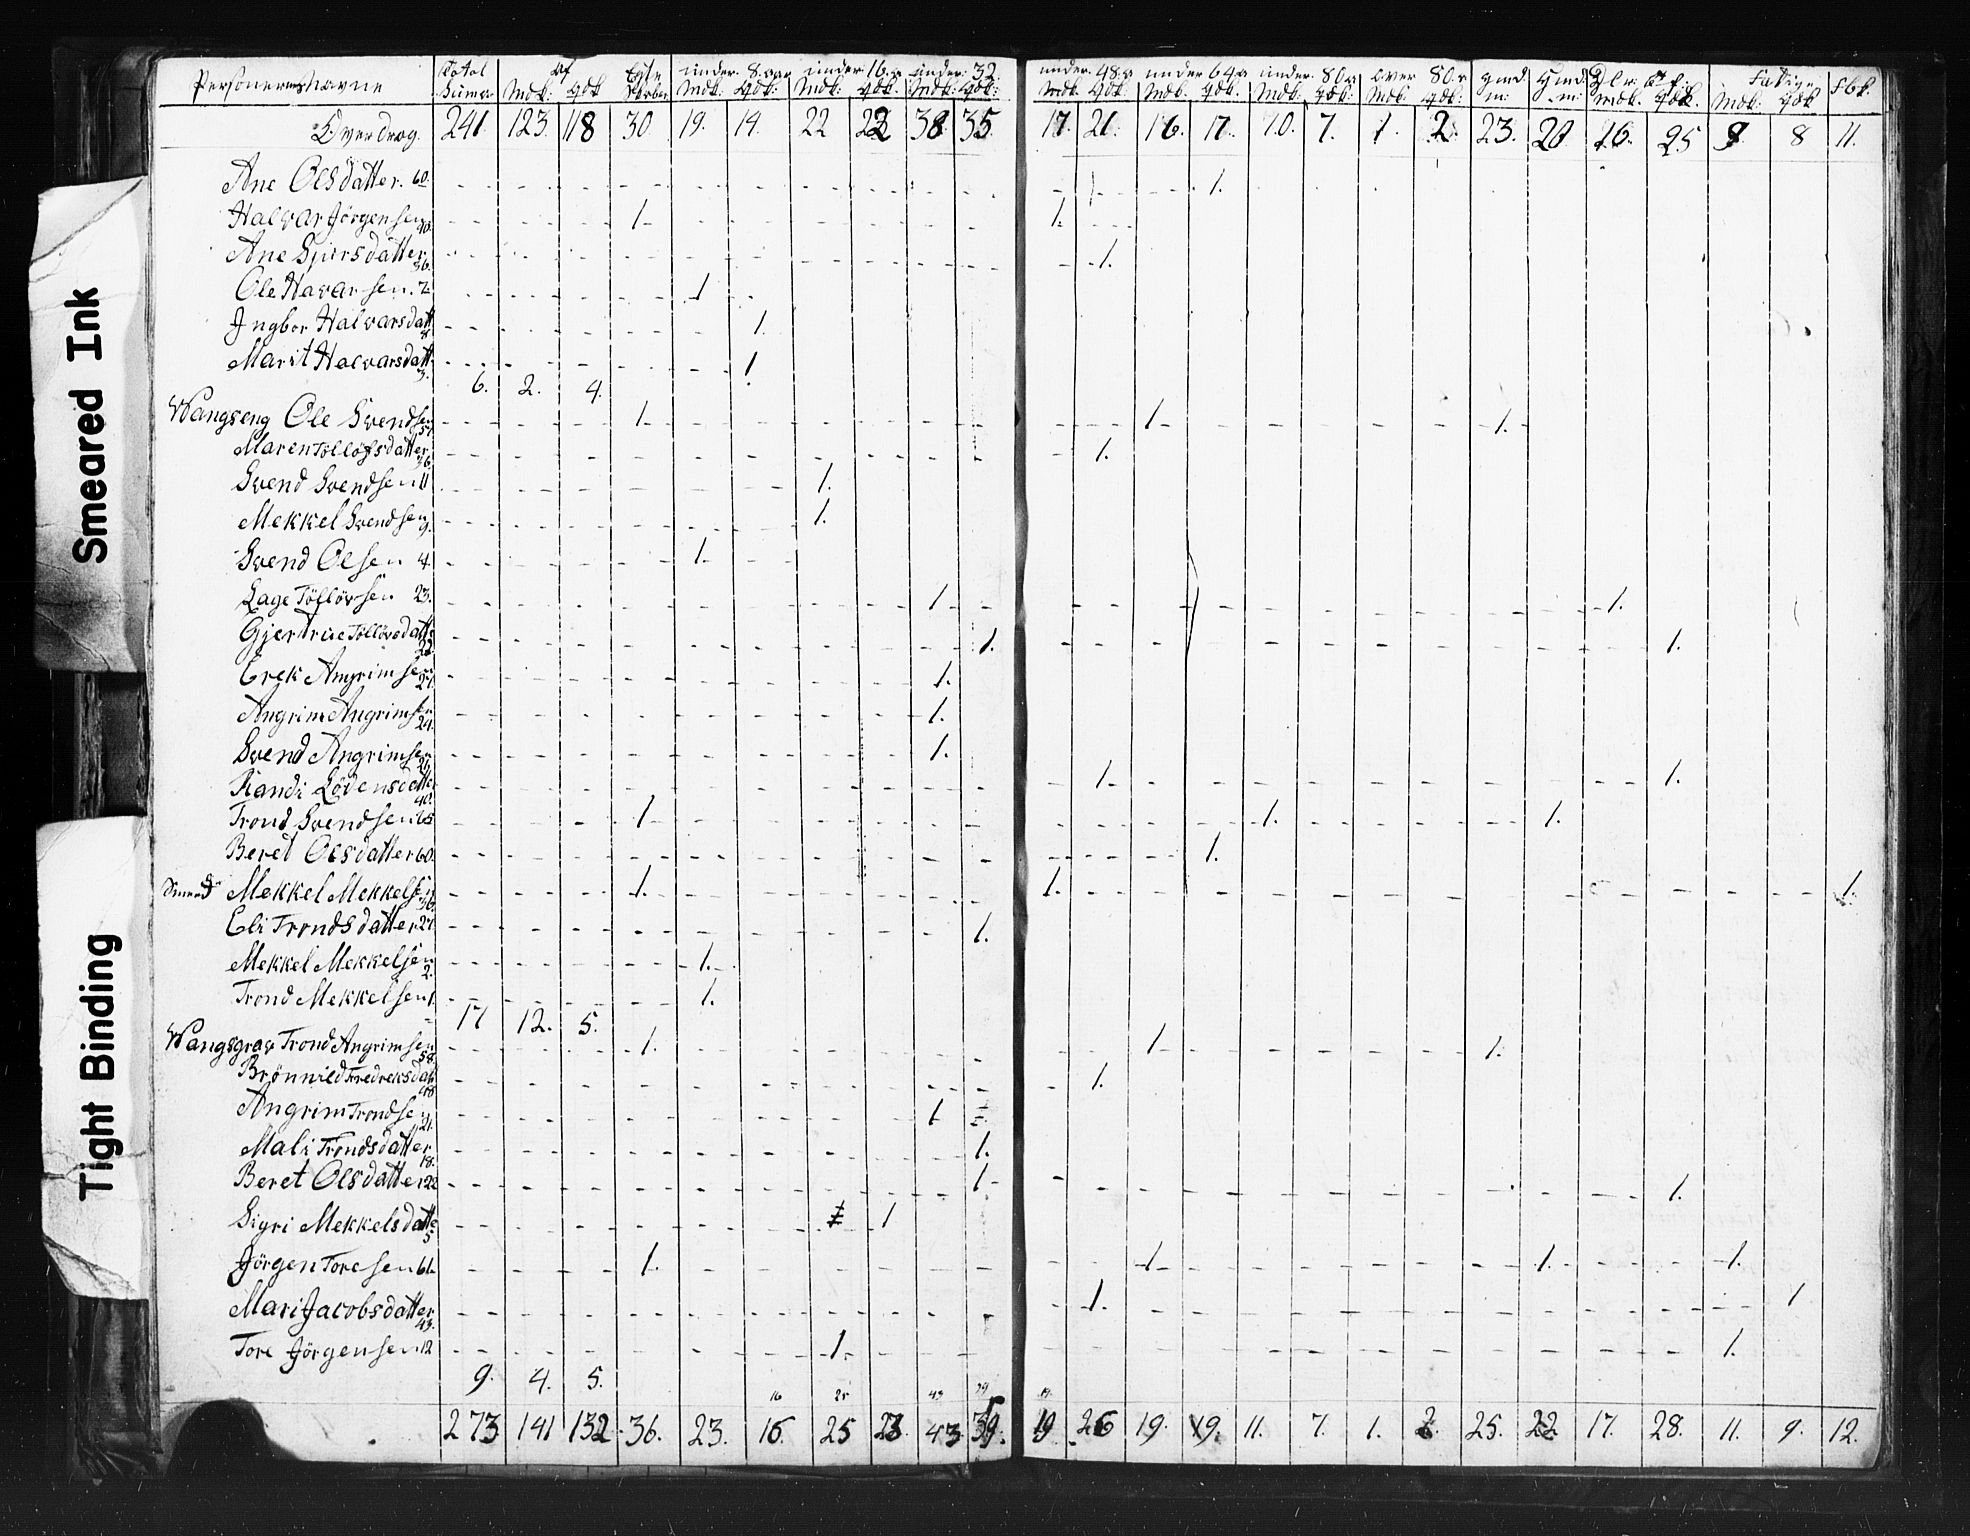 Smeared Ink
Tight Binding
Personernes Navne Total Summa Af Mdk: Qdk under 8. aar Mdk: Qdk: under 16. a Mdk: Qdk: under 32. Mdk: Qdk: under 48. a Mdk. Qdk. under 64 a Mdk. Qdk. under 80 a Mdk: Qdk: over 80. a Mdk: Qdk: Mdk. Qdk. Fattige Mdk: Qdk
Overdrag. 241 123. 118 30 19. 14. 22 22 38 35 17. 21. 16. 17. 10. 7. 1. 2. 23. 20 16. 25 9. 8 11.
Ane Olsdatter. 60. 1. 1.
Halvar Jörgensen 40. 1 1.
Ane Sjursdatter 36. 1.
Ole Havarsen. 7. 1
Ingbor Halvarsdatt 1.
Marit Halvarsdatt 3. 1
6. 2. 4.
Wangseng Ole Svendsen 57. 1. 1. 1.
Maren Tollofsdatter 36. 1.
Svend Svendsen 11 1.
Mekkel Svendsen 9. 1.
Svend Olsen 4. 1.
Lage Töllövsen 23. 1. 1.
Gjertrue Töllövsdatt 22. 1. 1.
Erek Angrimsen 27. 1.
Angrim Angrimsen 24. 1.
Svend Angrimsen 1.
Randi Lödensdatter 40. 1. 1.
Trond Svendsen 65 1 1. 1.
Beret Olsdatter 60. 1.
Mekkel Mekkelsen 36. 1. 1. 1.
Eli Trondsdatter 27. 1.
Mekkel Mekkelsen 2. 1.
Trond Mekkelsen 1. 1.
17 12. 5.
Wangsgrav Trond Angrimsen 58. 1. 1. 1.
Brönnild Fredreksdatt 48 1.
Angrim Trondsen 21. 1
Mali Trondsdatter 18. 1.
Beret Olsdatter 22 1 1.
Sigri Mekkelsdatt 1
Jörgen Toresen 61. 1. 1 1. 1.
Mari Jacobsdatter 43. 1. 1
Tore Jörgensen 12 1. 1.
9. 4. 5. 16 25 43 39 19.
273 141 132 36. 23. 16. 25 23. 43 39. 19 26 19. 19. 11. 7. 1. 2. 25. 22 17. 28. 11. 9. 12.